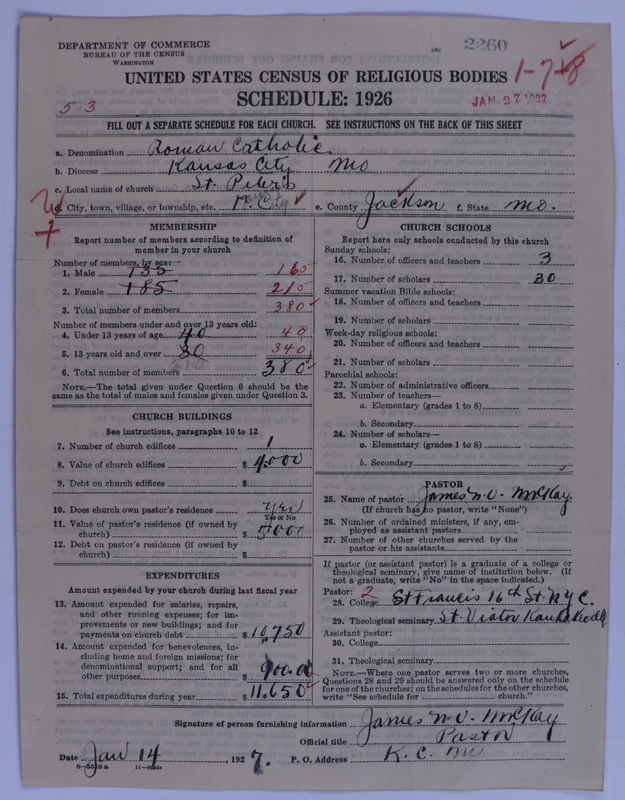 DEPARTMENT OF COMMERCE
BUREAU OF THE CENSUS
WASHINGTON
2260
UNITED STATES CENSUS OF RELIGIOUS BODIES
1-7-48
SCHEDULE: 1926
5-3
JAN 27 1927
FILL OUT A SEPARATE SCHEDULE FOR EACH CHURCH. SEE INSTRUCTIONS ON THE BACK OF THIS SHEET
a. Denomination Roman Catholic
b. Diocese Kansas City Mo
c. Local name of church St. Peter's
d. City, town, village, or township, etc. K. City e. County Jackson f. State Mo.
MEMBERSHIP
Report number of members according to definition of member in your church
Number of members, by sex:
1. Male 135 165
2. Female 185 210
3. Total number of members 380
Number of members under and over 13 years old:
4. Under 13 years of age 40 40
5. 13 years old and over 30 340
6. Total number of members 380
NOTE.—The total given under Question 6 should be the same as the total of males and females given under Question 3.
CHURCH BUILDINGS
See instructions, paragraphs 10 to 12
7. Number of church edifices 1
8. Value of church edifices $ 4000
9. Debt on church edifices $
10. Does church own pastor's residence Yes
Yes or No
11. Value of pastor's residence (if owned by church) $ 5000
12. Debt on pastor's residence (if owned by church) $
EXPENDITURES
Amount expended by your church during last fiscal year
13. Amount expended for salaries, repairs, and other running expenses; for improvements or new buildings; and for payments on church debt $ 10,750
14. Amount expended for benevolences, including home and foreign missions; for denominational support; and for all other purposes $ 900.00
15. Total expenditures during year $ 11,650
CHURCH SCHOOLS
Report here only schools conducted by this church
Sunday schools:
16. Number of officers and teachers 3
17. Number of scholars 30
Summer vacation Bible schools:
18. Number of officers and teachers
19. Number of scholars
Week-day religious schools:
20. Number of officers and teachers
21. Number of scholars
Parochial schools:
22. Number of administrative officers
23. Number of teachers—
a. Elementary (grades 1 to 8)
b. Secondary
24. Number of scholars—
a. Elementary (grades 1 to 8)
b. Secondary
PASTOR
25. Name of pastor James N.V. McKay
(If church has no pastor, write "None")
26. Number of ordained ministers, if any, employed as assistant pastors
27. Number of other churches served by the pastor or his assistants
If pastor (or assistant pastor) is a graduate of a college or theological seminary, give name of institution below. (If not a graduate, write "No" in the space indicated.)
Pastor: 2
28. College St Francis 16th St. N.Y.C.
29. Theological seminary St. Viator
Assistant pastor:
30. College
31. Theological seminary
NOTE.—Where one pastor serves two or more churches, Questions 28 and 29 should be answered only on the schedule for one of the churches; on the schedules for the other churches, write "See schedule for church."
Signature of person furnishing information James N.V. McKay
Official title Pastor
Date Jan 14, 1927. P. O. Address K. C. Mo